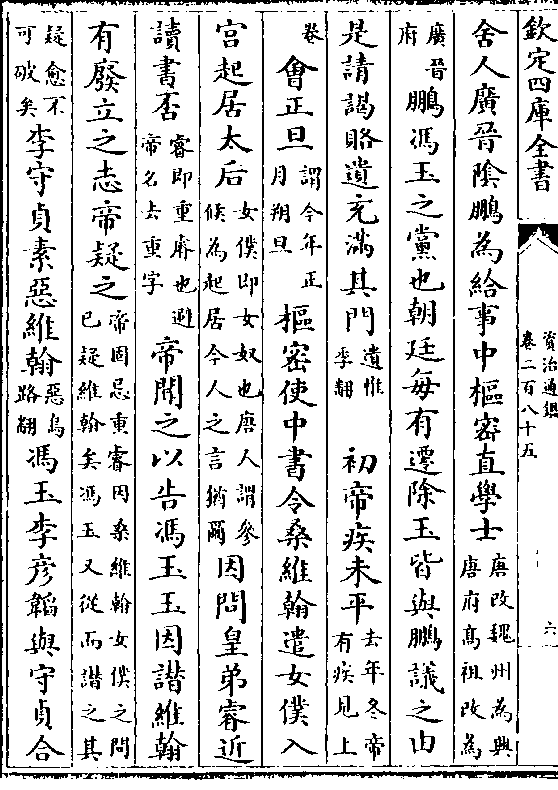 欽定四庫全書
資治通鑑
卷二百八十五
六
舍人廣晉陰鵬為給事中樞密直學士唐改魏州為興唐府髙祖改為
廣晉府鵬馮玉之黨也朝廷毎有遷除玉皆與鵬議之由
是請謁賂遺充滿其門遺惟季翻初帝疾未平去年冬帝有疾見上
卷會正旦謂今年正月朔旦樞密使中書令桑維翰遣女僕入
宫起居太后女僕即女奴也唐人謂參候為起居今人之言猶爾因問皇弟睿近
讀書否睿即重睿也避帝名去重字帝聞之以告馮玉玉因譖維翰
有廢立之志帝疑之帝固忌重睿因桑維翰女僕之問已疑維翰矣馮玉又從而譖之其
疑愈不可破矣李守貞素惡維翰惡烏路翻馮玉李彦韜與守貞合